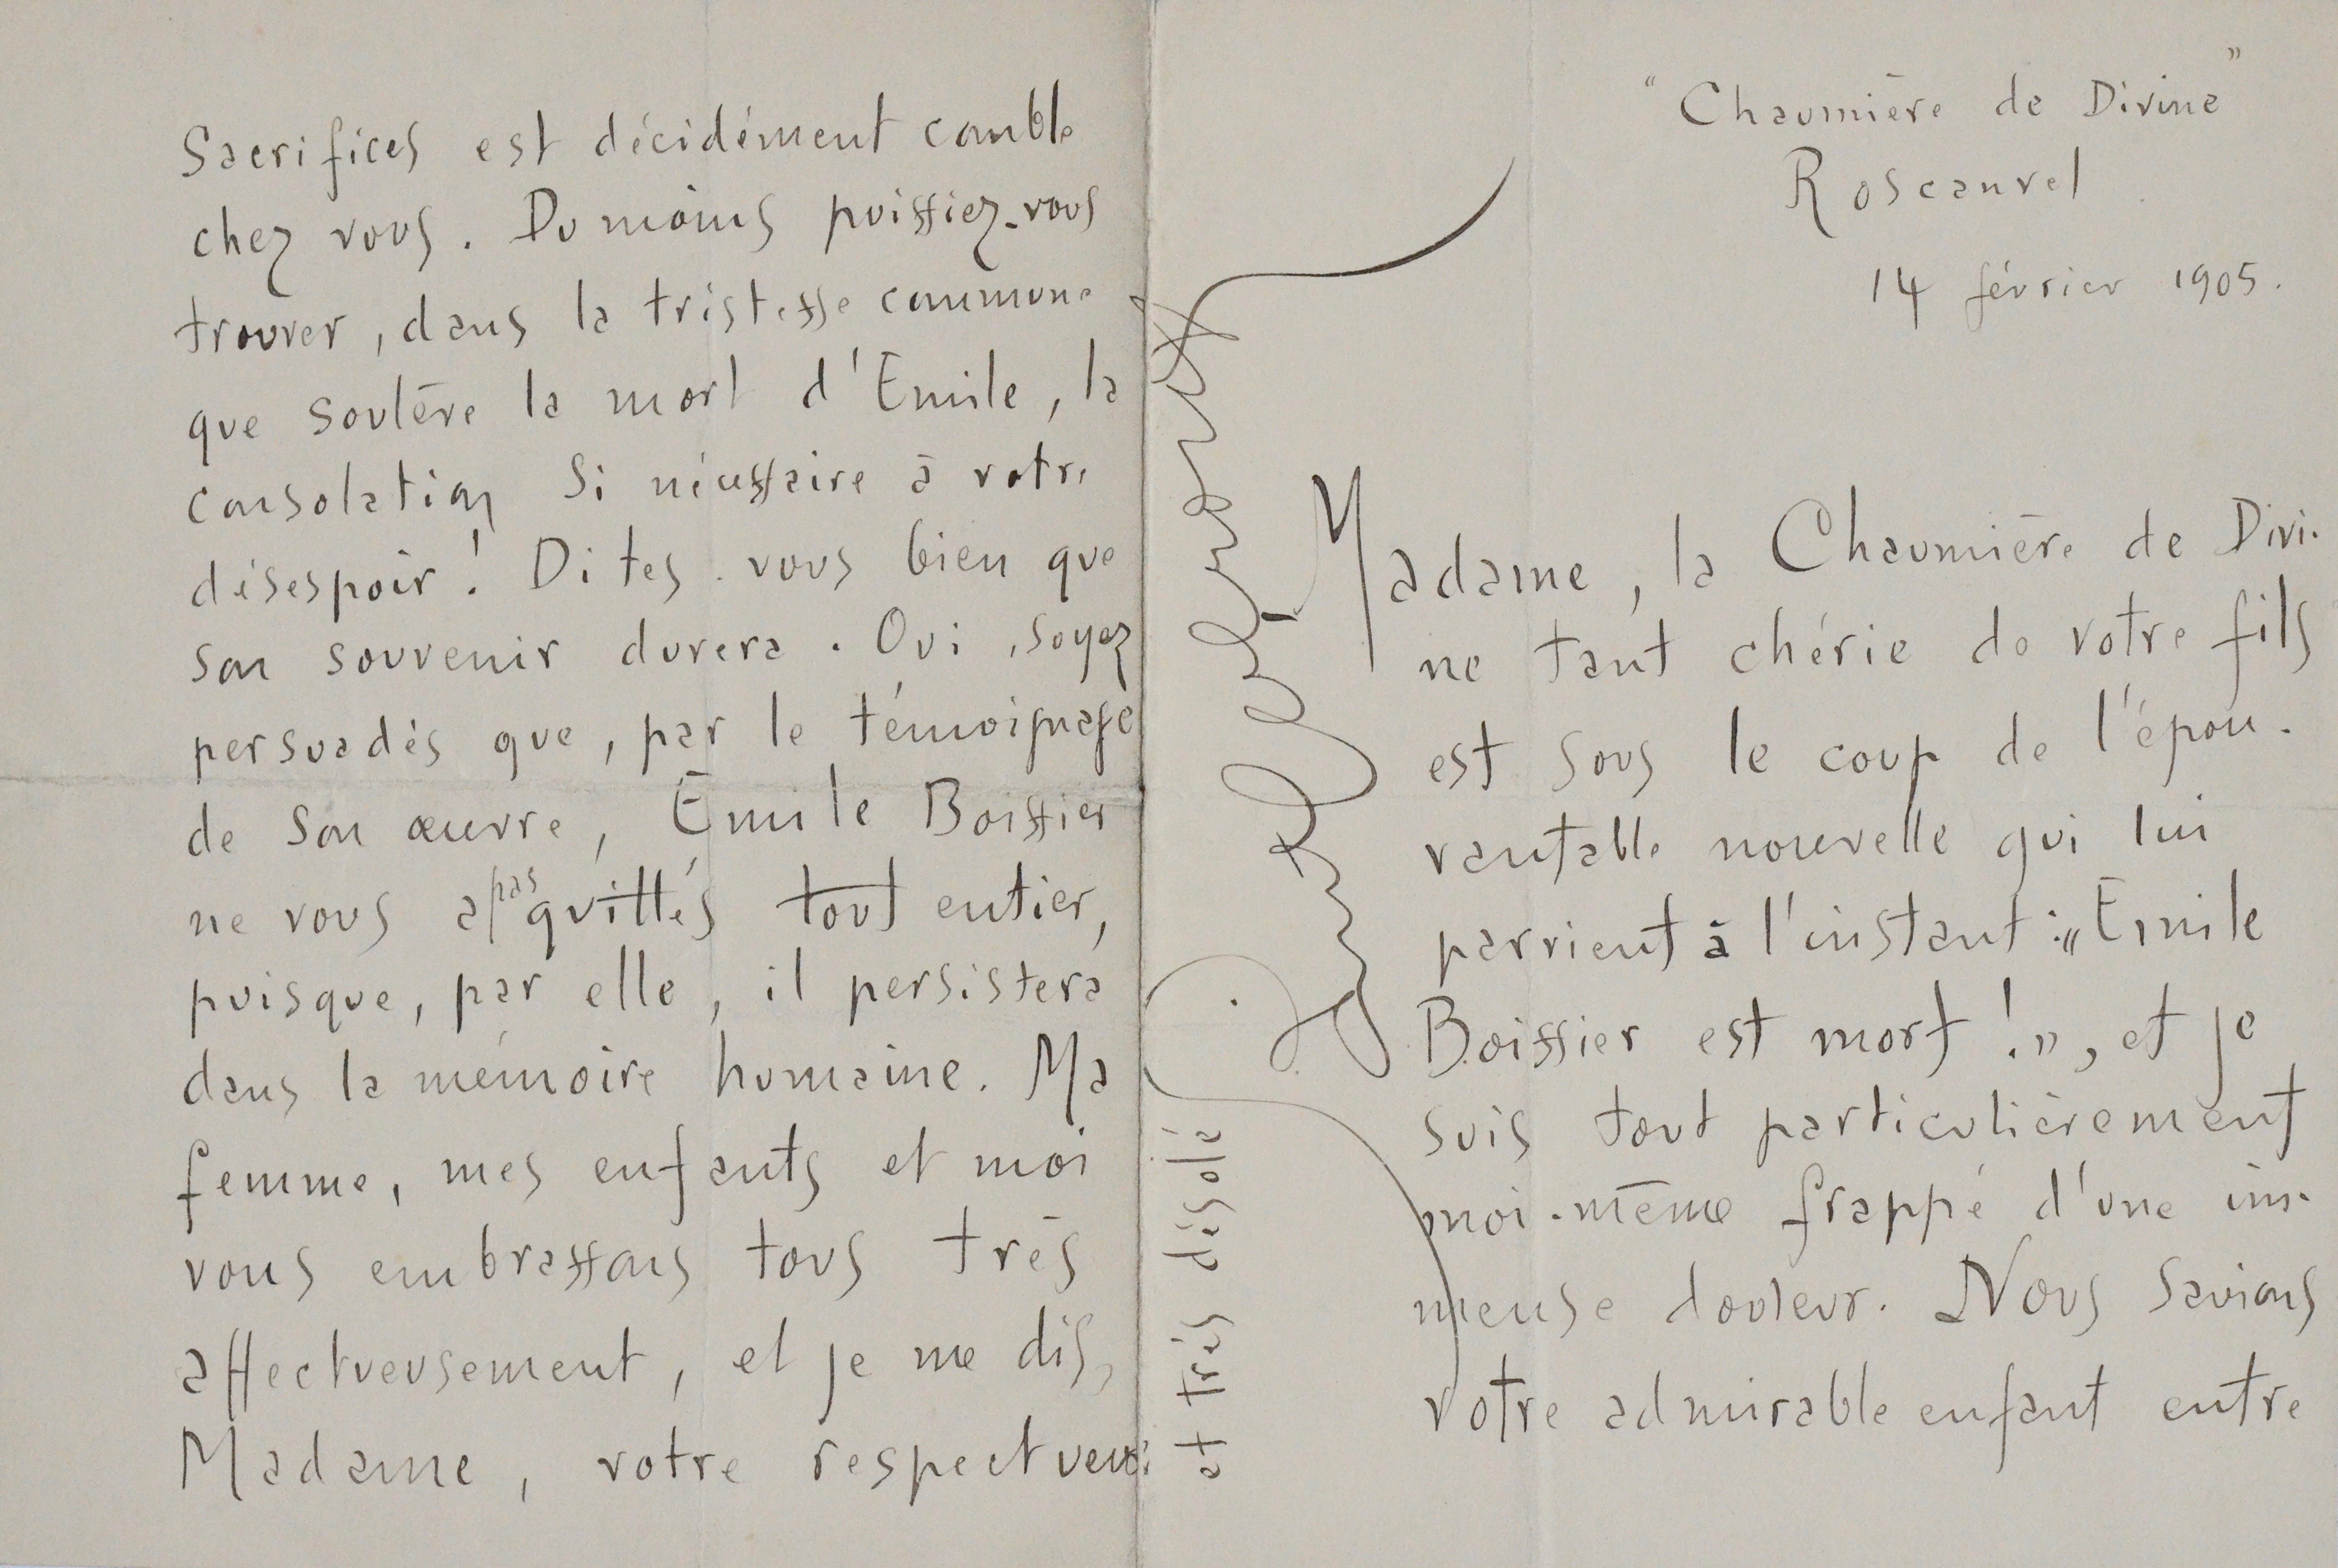 "Chaumière de Divine"
Roscanvel
14 février 1905.
Madame, la Chaumière de Divi-
ne tant chérie de votre fils
est sous le coup de l'épou-
vantable nouvelle qui lui
parvient à l'instant : « Emile
Boissier est mort ! », et je
suis tout particulièrement
moi-même frappé d'une im-
mense douleur. Nous savions
votre admirable enfant entre
Sacrifices est décidément comble
chez vous. Du moins puissiez-vous
trouver, dans la tristesse commune
que soulève la mort d'Emile, la
consolation si nécessaire à votre
désespoir ! Dites-vous bien que
son souvenir durera. Oui, soyez
persuadés que, par le témoignage
de son œuvre, Emile Boissier
ne vous a pas quittés tout entier,
puisque, par elle, il persistera
dans la mémoire humaine. Ma
femme, mes enfants et moi
vous embrassons tous très
affectueusement, et je me dis,
Madame, votre respectueux
et très désolé
Saint-Pol-Roux